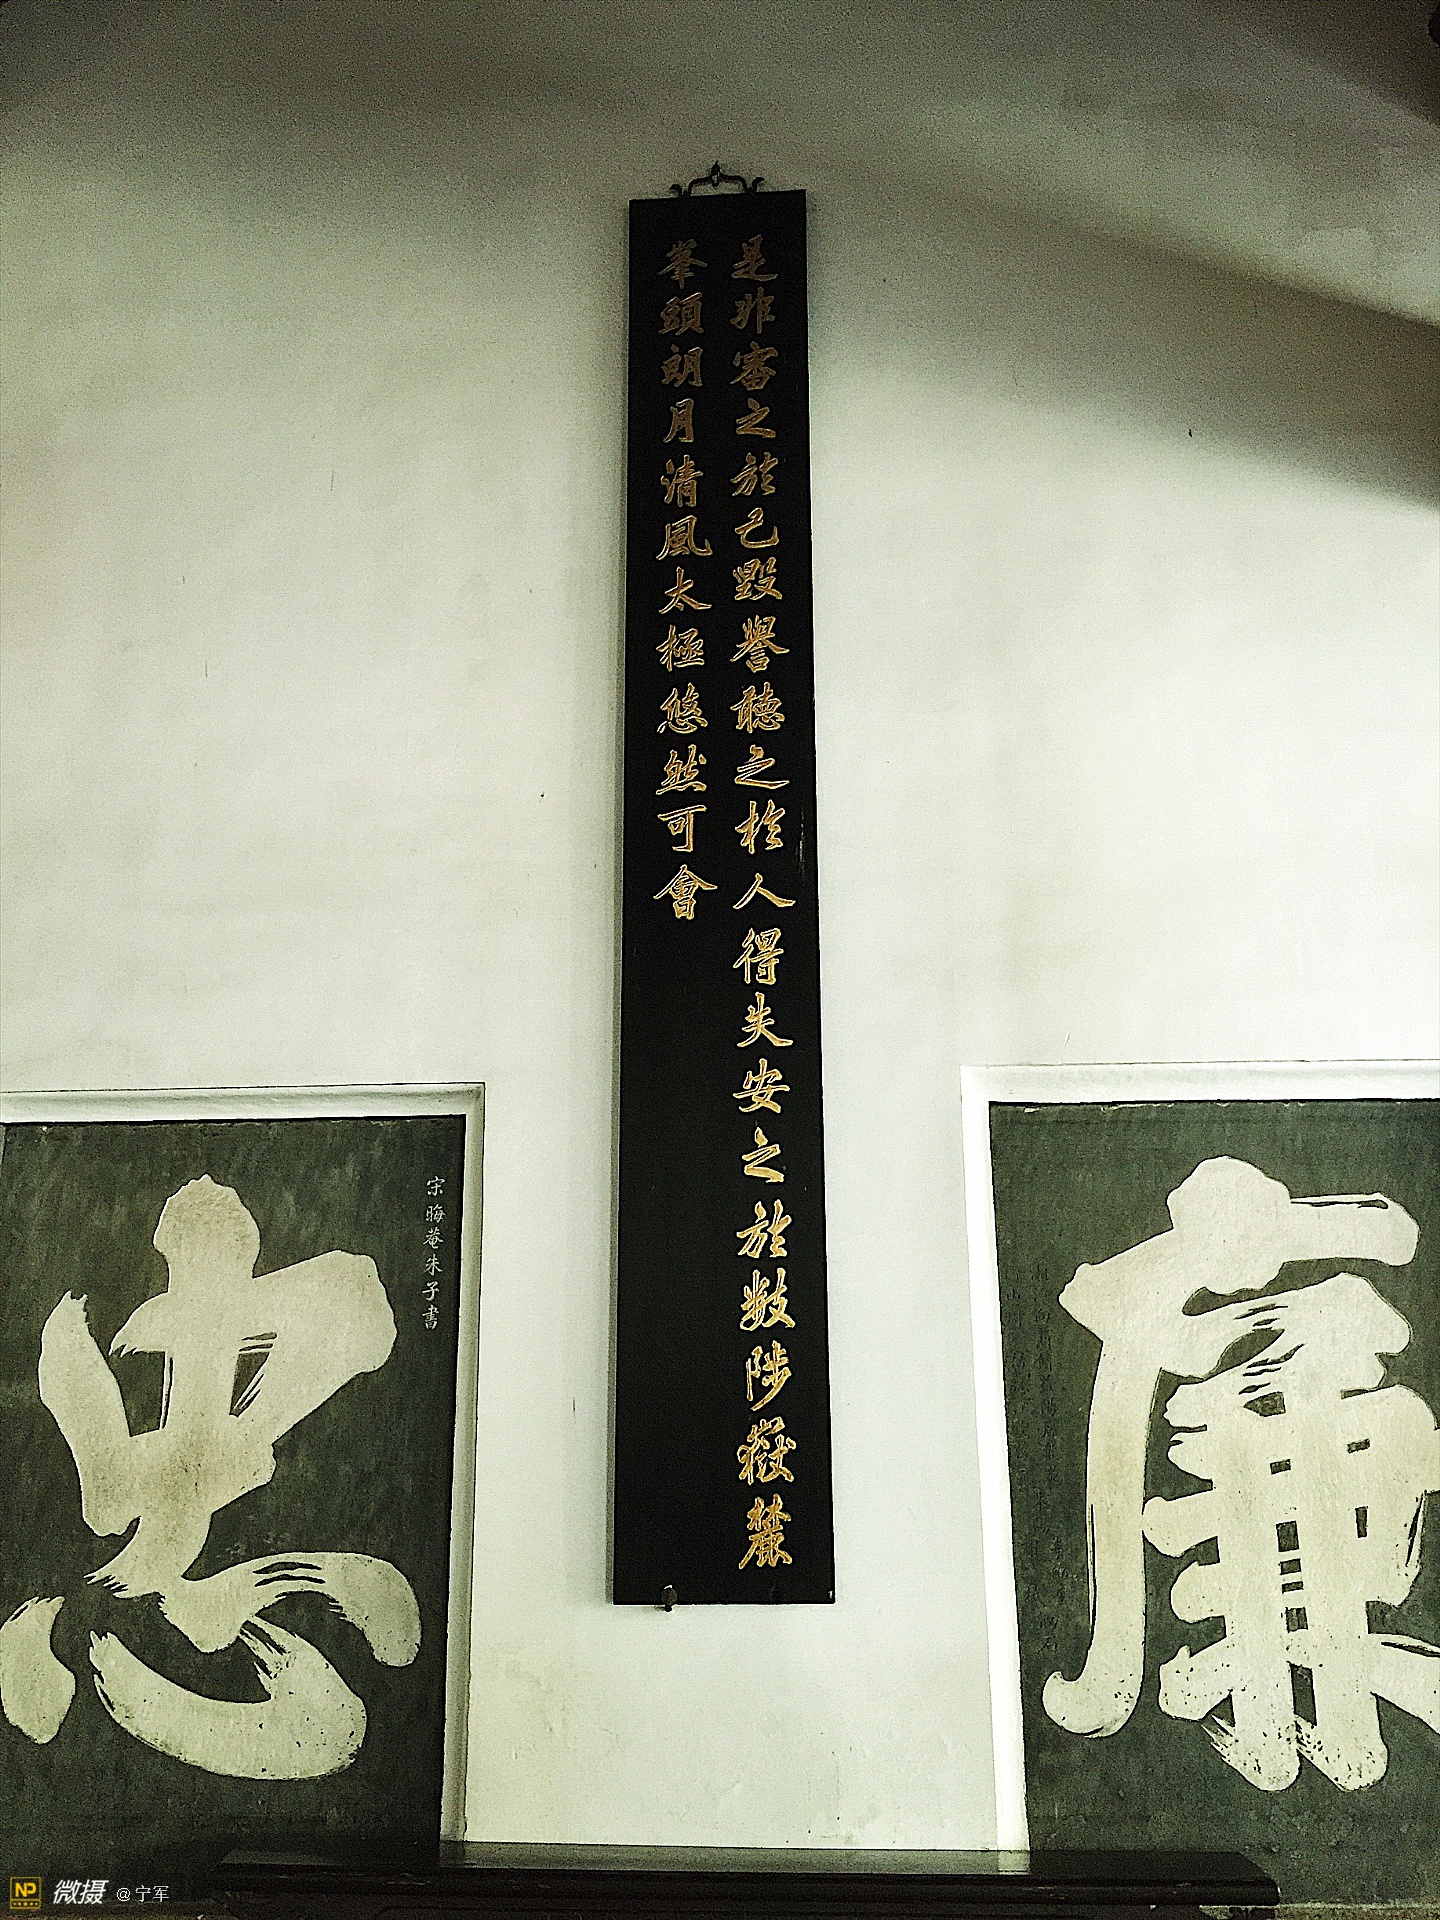 是非審之於己毀譽聽之於人得失安之於數陟嶽麓
峯頭朗月清風太極悠然可會
廉
忠
宋晦菴朱子書
NP 微摄 @宁军